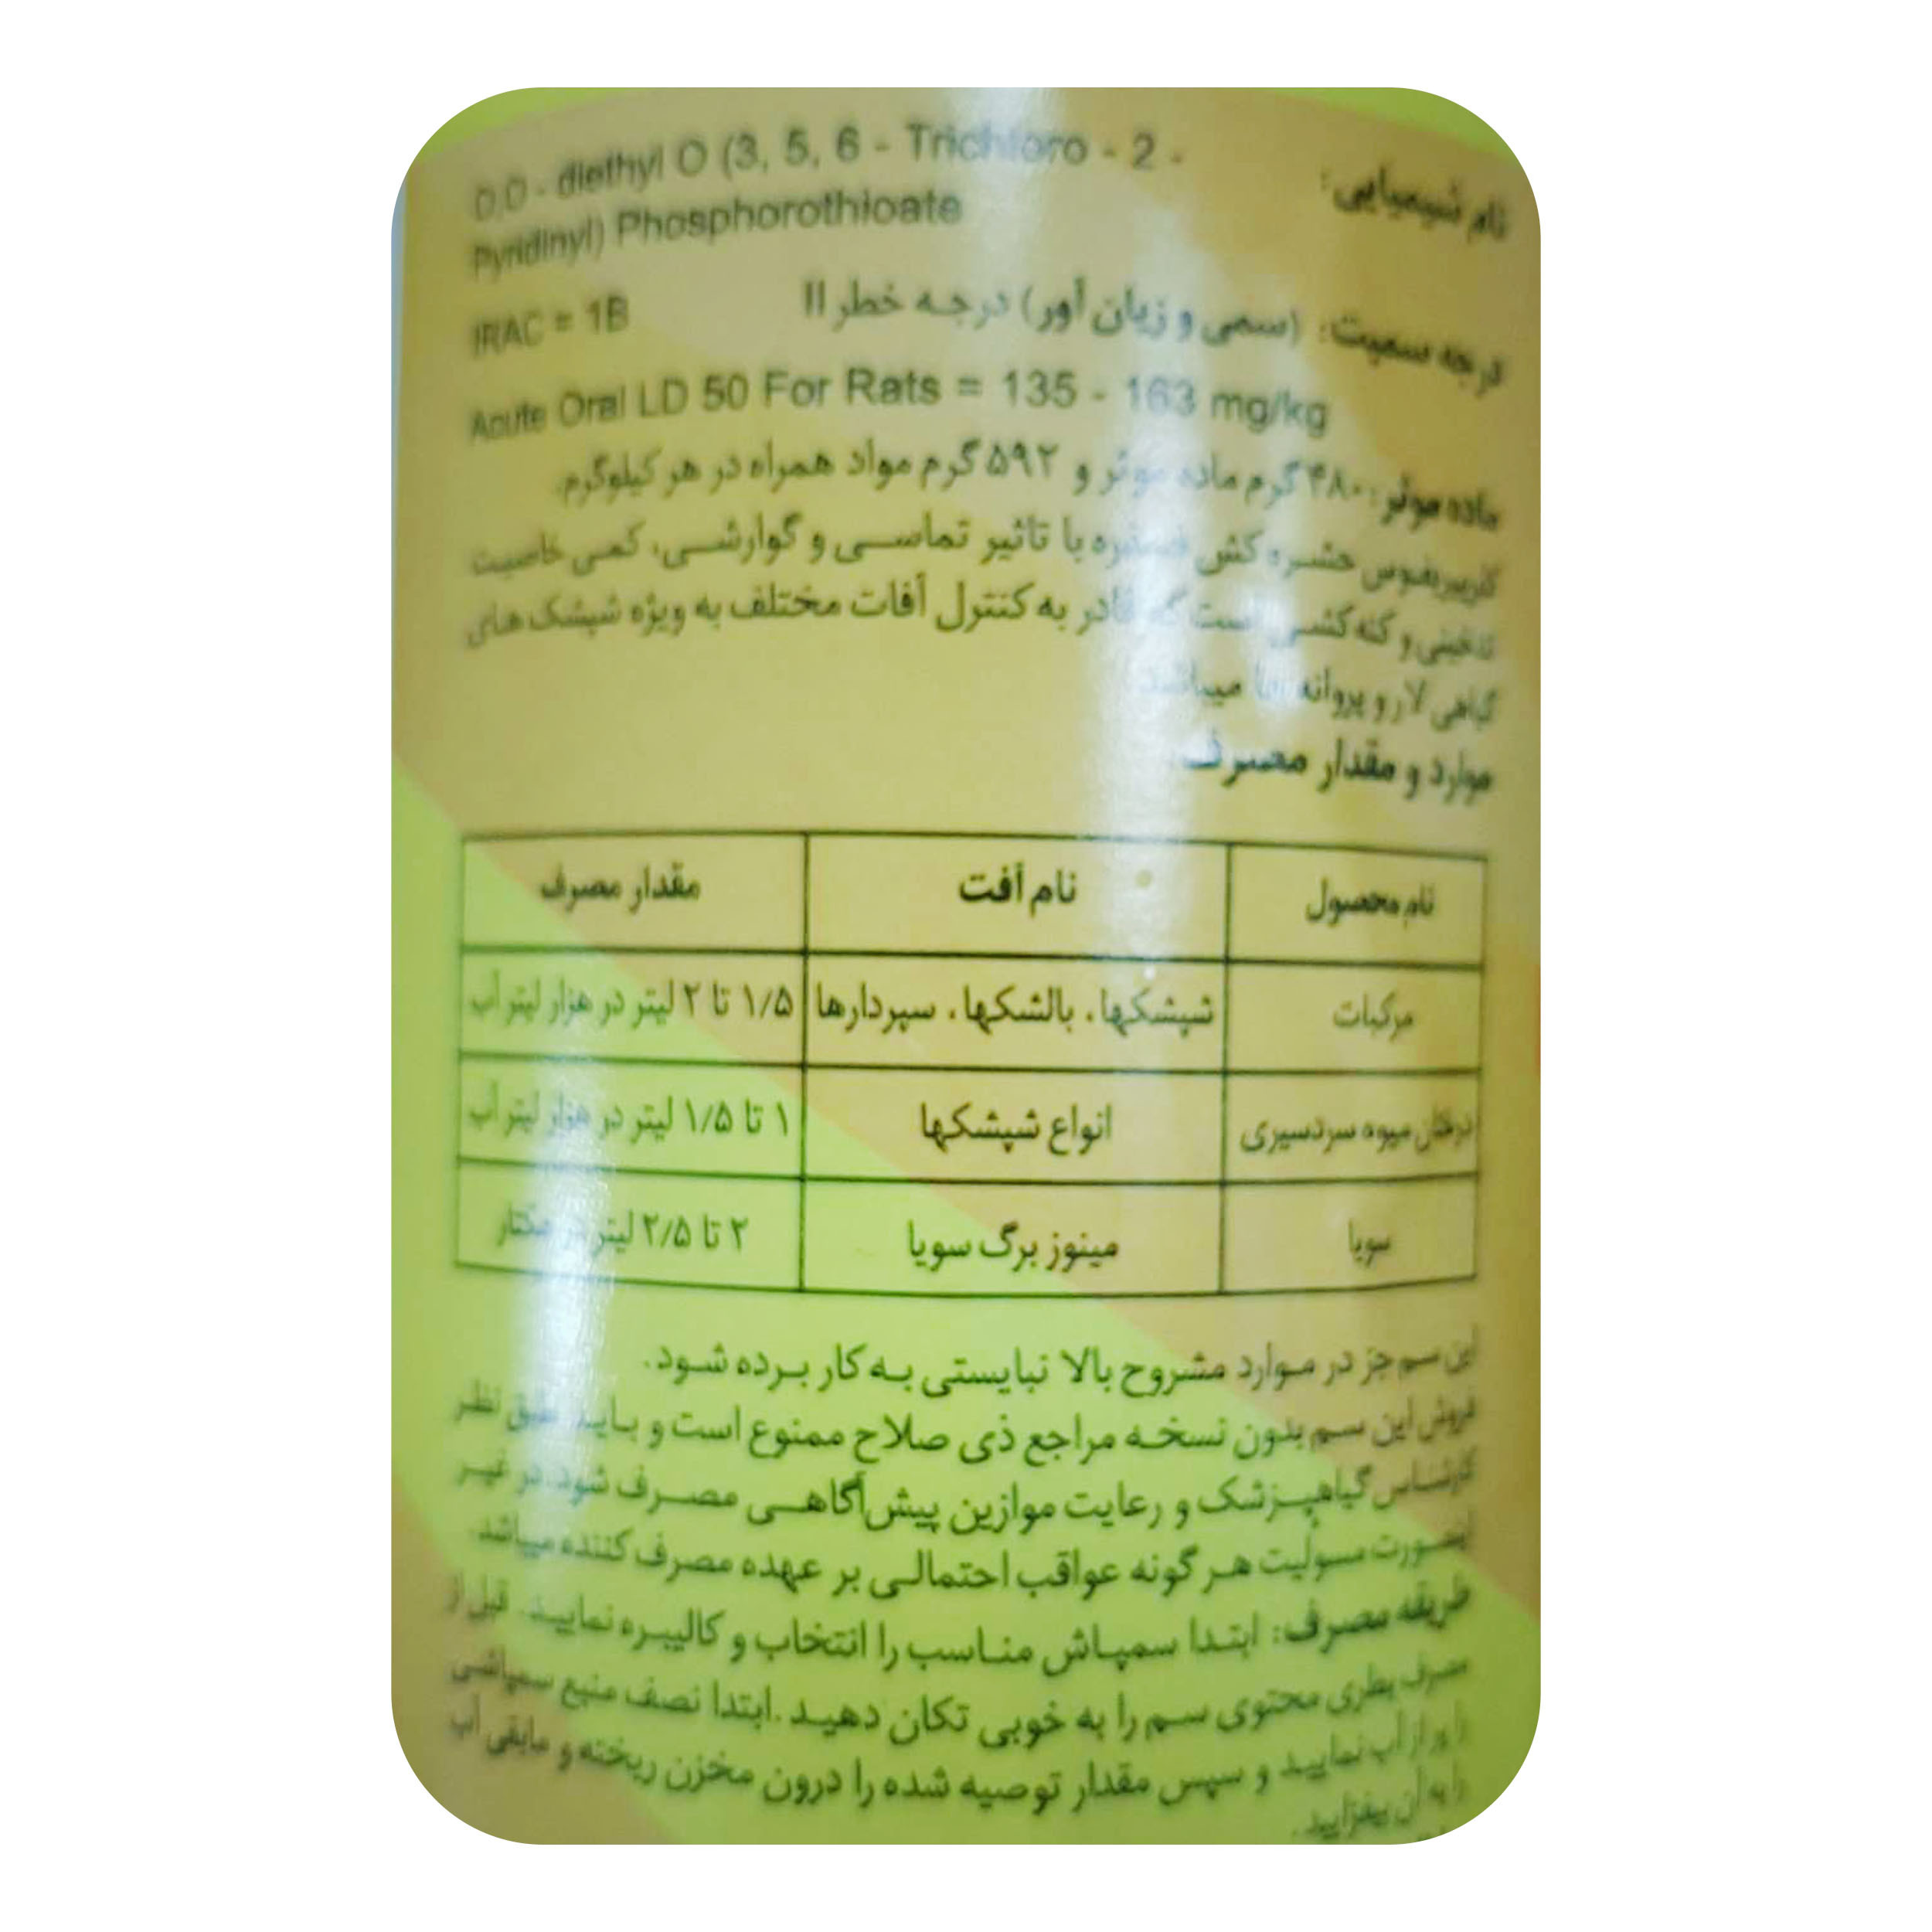 نام شیمیایی:
O,O - diethyl O (3, 5, 6 - Trichloro - 2 -
Pyridinyl) Phosphorothioate
درجه سمیت: (سمی و زیان آور) درجه خطر II
IRAC = 1B
Acute Oral LD 50 For Rats = 135 - 163 mg/kg
ماده موثر: ۴۸۰ گرم ماده موثر و ۵۹۲ گرم مواد همراه در هر کیلوگرم.
حشره کش با تاثیر تماسی و گوارشی، کمی خاصیت
تدخینی و کنه کشی است که قادر به کنترل آفات مختلف به ویژه شپشک های
گیاهی لارو پروانه ها میباشد.
موارد و مقدار مصرف:
نام محصول نام آفت مقدار مصرف
مرکبات شپشکها، بالشکها، سپردارها ۱/۵ تا ۲ لیتر در هزار لیتر آب
درختان میوه سردسیری انواع شپشکها ۱ تا ۱/۵ لیتر در هزار لیتر آب
سویا مینوز برگ سویا ۲ تا ۲/۵ لیتر در هکتار
این سم جز در موارد مشروح بالا نبایستی به کار برده شود.
فروش این سم بدون نسخه مراجع ذی صلاح ممنوع است و باید طبق نظر
کارشناس گیاهپزشک و رعایت موازین پیش‌آگاهی مصرف شود. در غیر
اینصورت مسولیت هر گونه عواقب احتمالی بر عهده مصرف کننده میباشد.
طریقه مصرف: ابتدا سمپاش مناسب را انتخاب و کالیبره نمایید. قبل از
مصرف بطری محتوی سم را به خوبی تکان دهید. ابتدا نصف منبع سمپاشی
را پر از آب نمایید و سپس مقدار توصیه شده را درون مخزن ریخته و مابقی آب
را به آن بیفزایید.